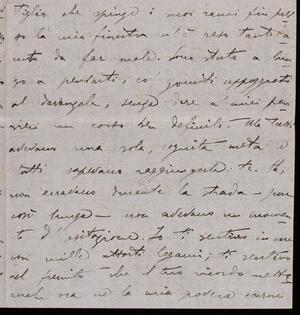 tiglio che spinge i suoi rami fin pres
so la mia finestra n'è reso tanti
nto da far male. Sono stato a lun
go a pensarti, co' gomiti appoggiati
al davanzale, senza dare a' miei pen
sieri un corso ben definito. Ma tutti
avevano una sola, eguale meta e
tutti sapevano raggiungerla: te. Ah,
non erravano durante la strada – pur
così lunga – non avevano un momen
to d'esitazione. Io ti sentivo in me
con mille attorti legami; ti sentivo
nel fremito che il tuo ricordo mette
anche ora ne la mia povera carne